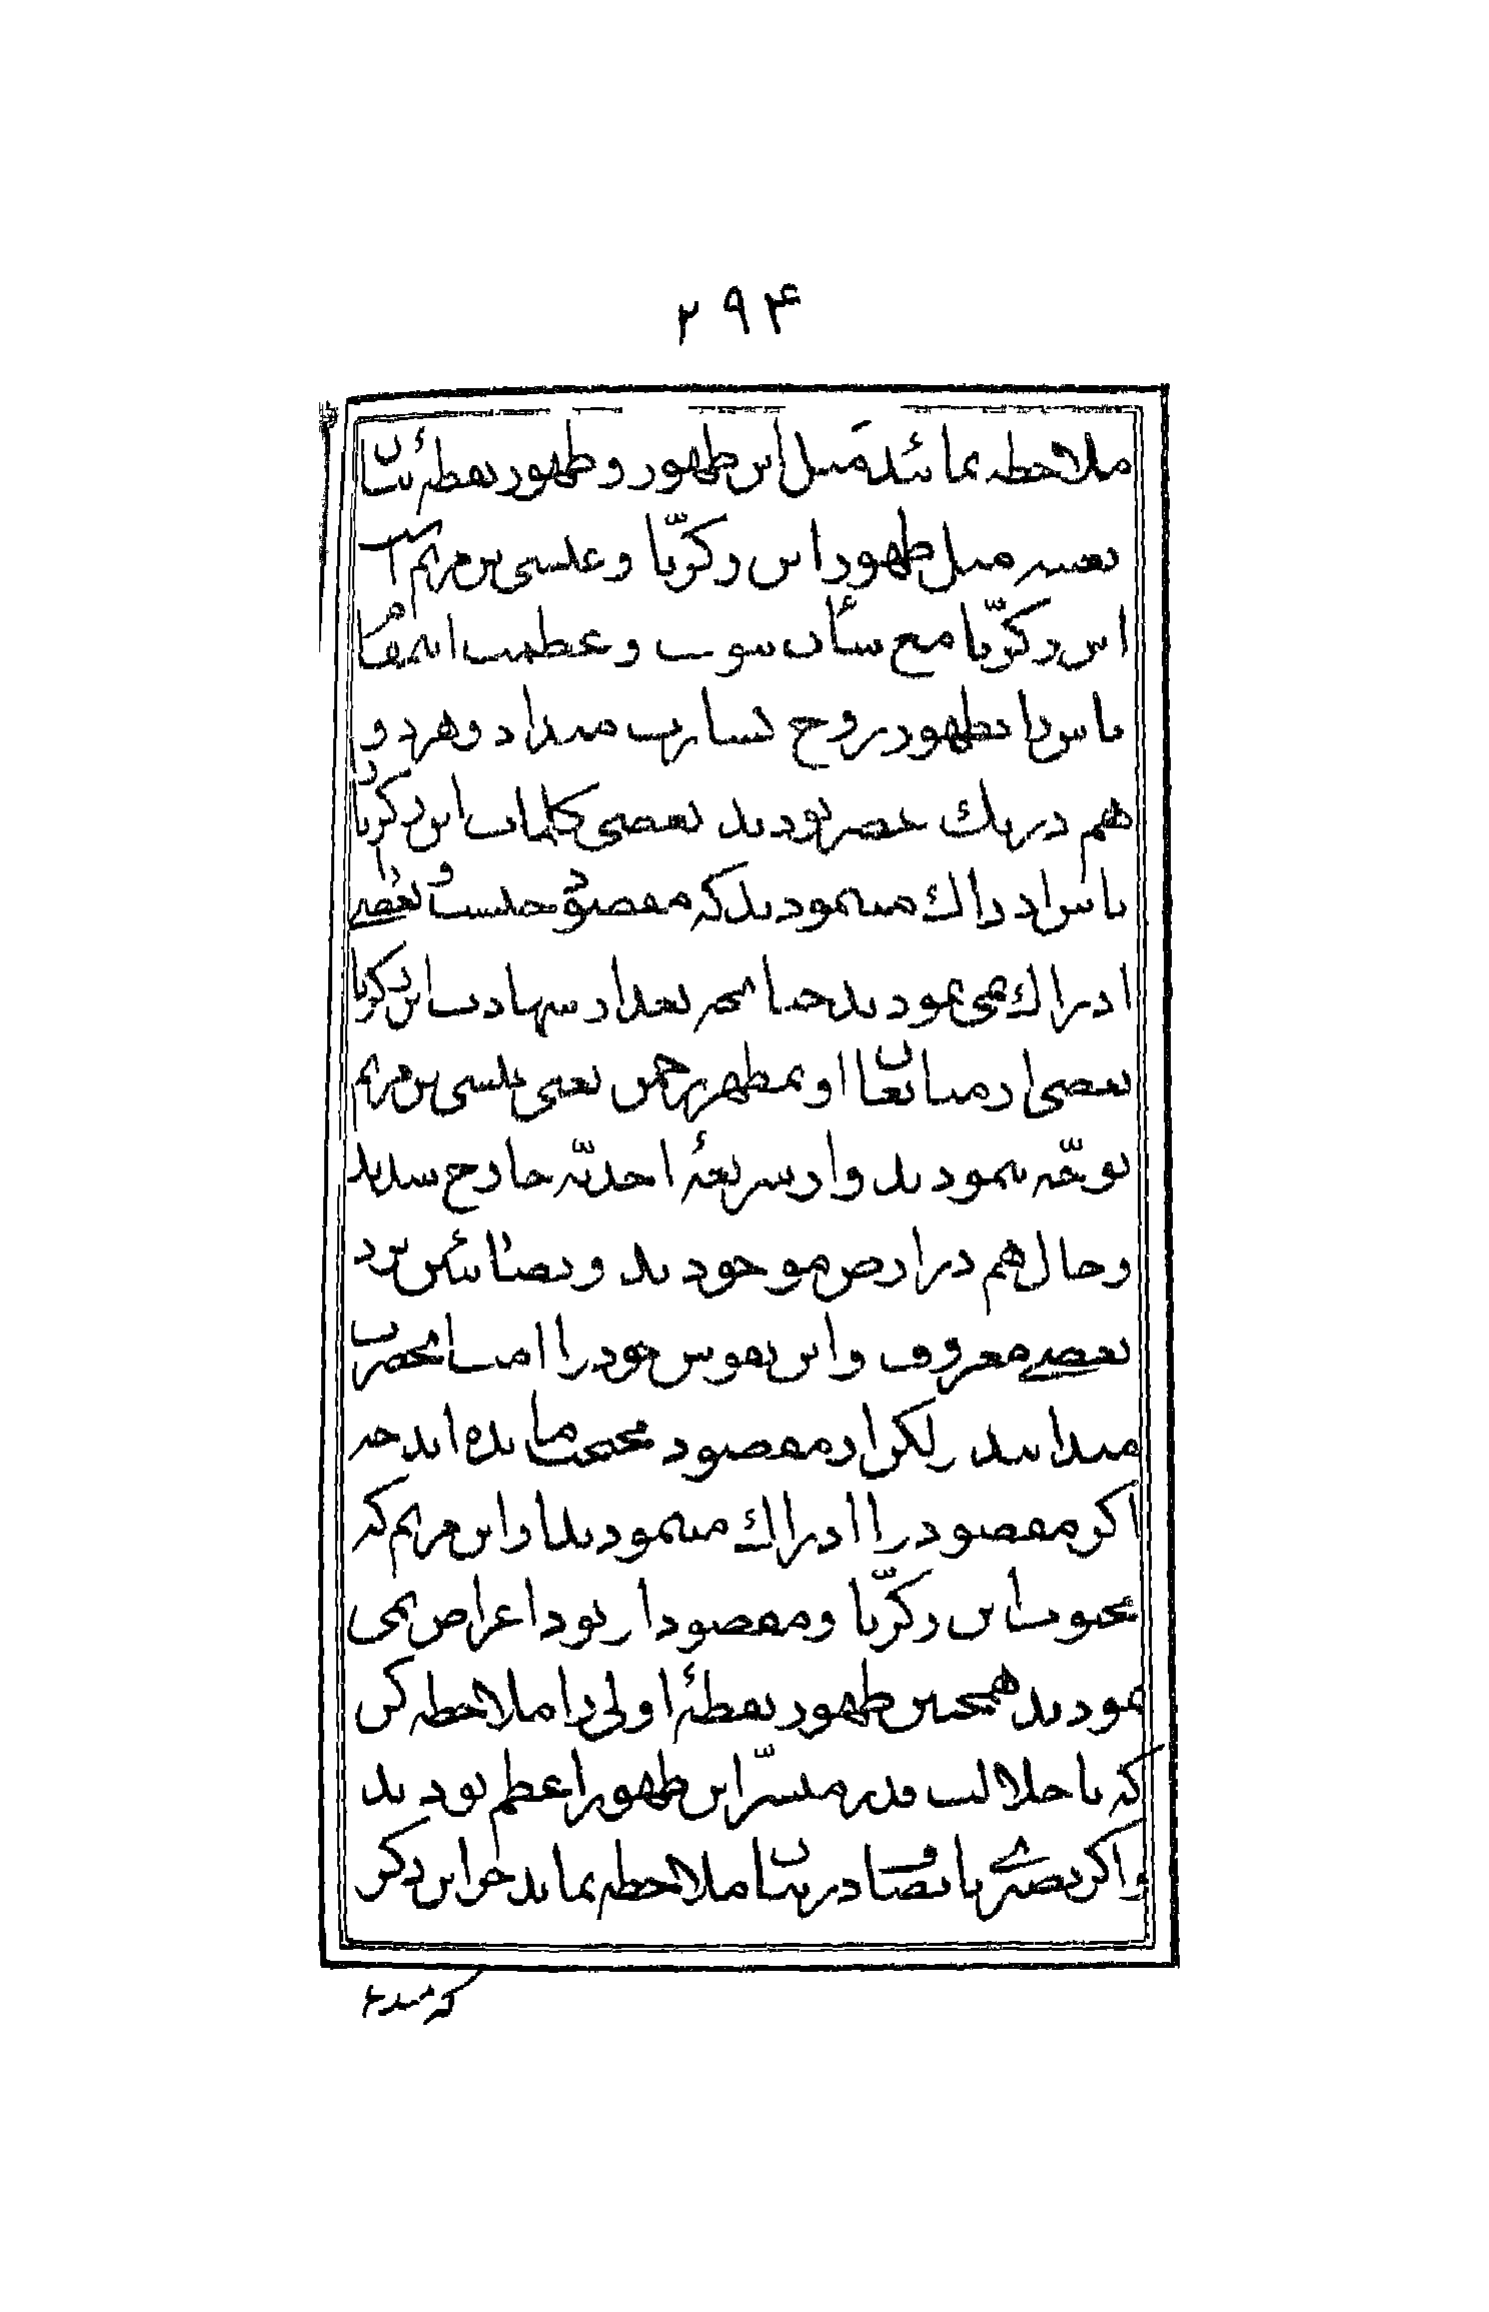 ۲۹۴
ملاحظه نمائید مثل این ظهور و ظهور نقطهٔ بیان
بعینه مثل ظهور ابن زکریّا و عیسی بن مریم است
ابن زکریّا مع شأن نبوت و عظمت این مقام
ناس را بظهور روح بشارت میداد و هر دو
هم در یک عصر بودند بعضی کلمات ابن زکریّا را
باین ادراک مینمودند که مقصود چیست و بعضی
ادراک نمی نمودند چنانچه بعد از شهادت ابن زکریا
بعضی از متابعان او بمظهر رحمن یعنی عیسی بن مریم
توجّه ننمودند و از شریعهٔ احدیّه خارج شدند
و حال هم در ارض موجودند و بصابئین نزد
بعضی معروف و این نفوس خود را امت آنحضرت
میدانند ولکن از مقصود محتجب مانده اند چه
اکر مقصود را ادراک مینمودند از ابن مریم که
محبوب ابن زکریّا و مقصود او بود اعراض نمی
نمودند همچنین ظهور نقطهٔ اولی را ملاحظه کن
که با جلالت قدر مبشّر این ظهور اعظم بودند
و اکر بصری بانصاف در بیان ملاحظه نماید جز این ذکر